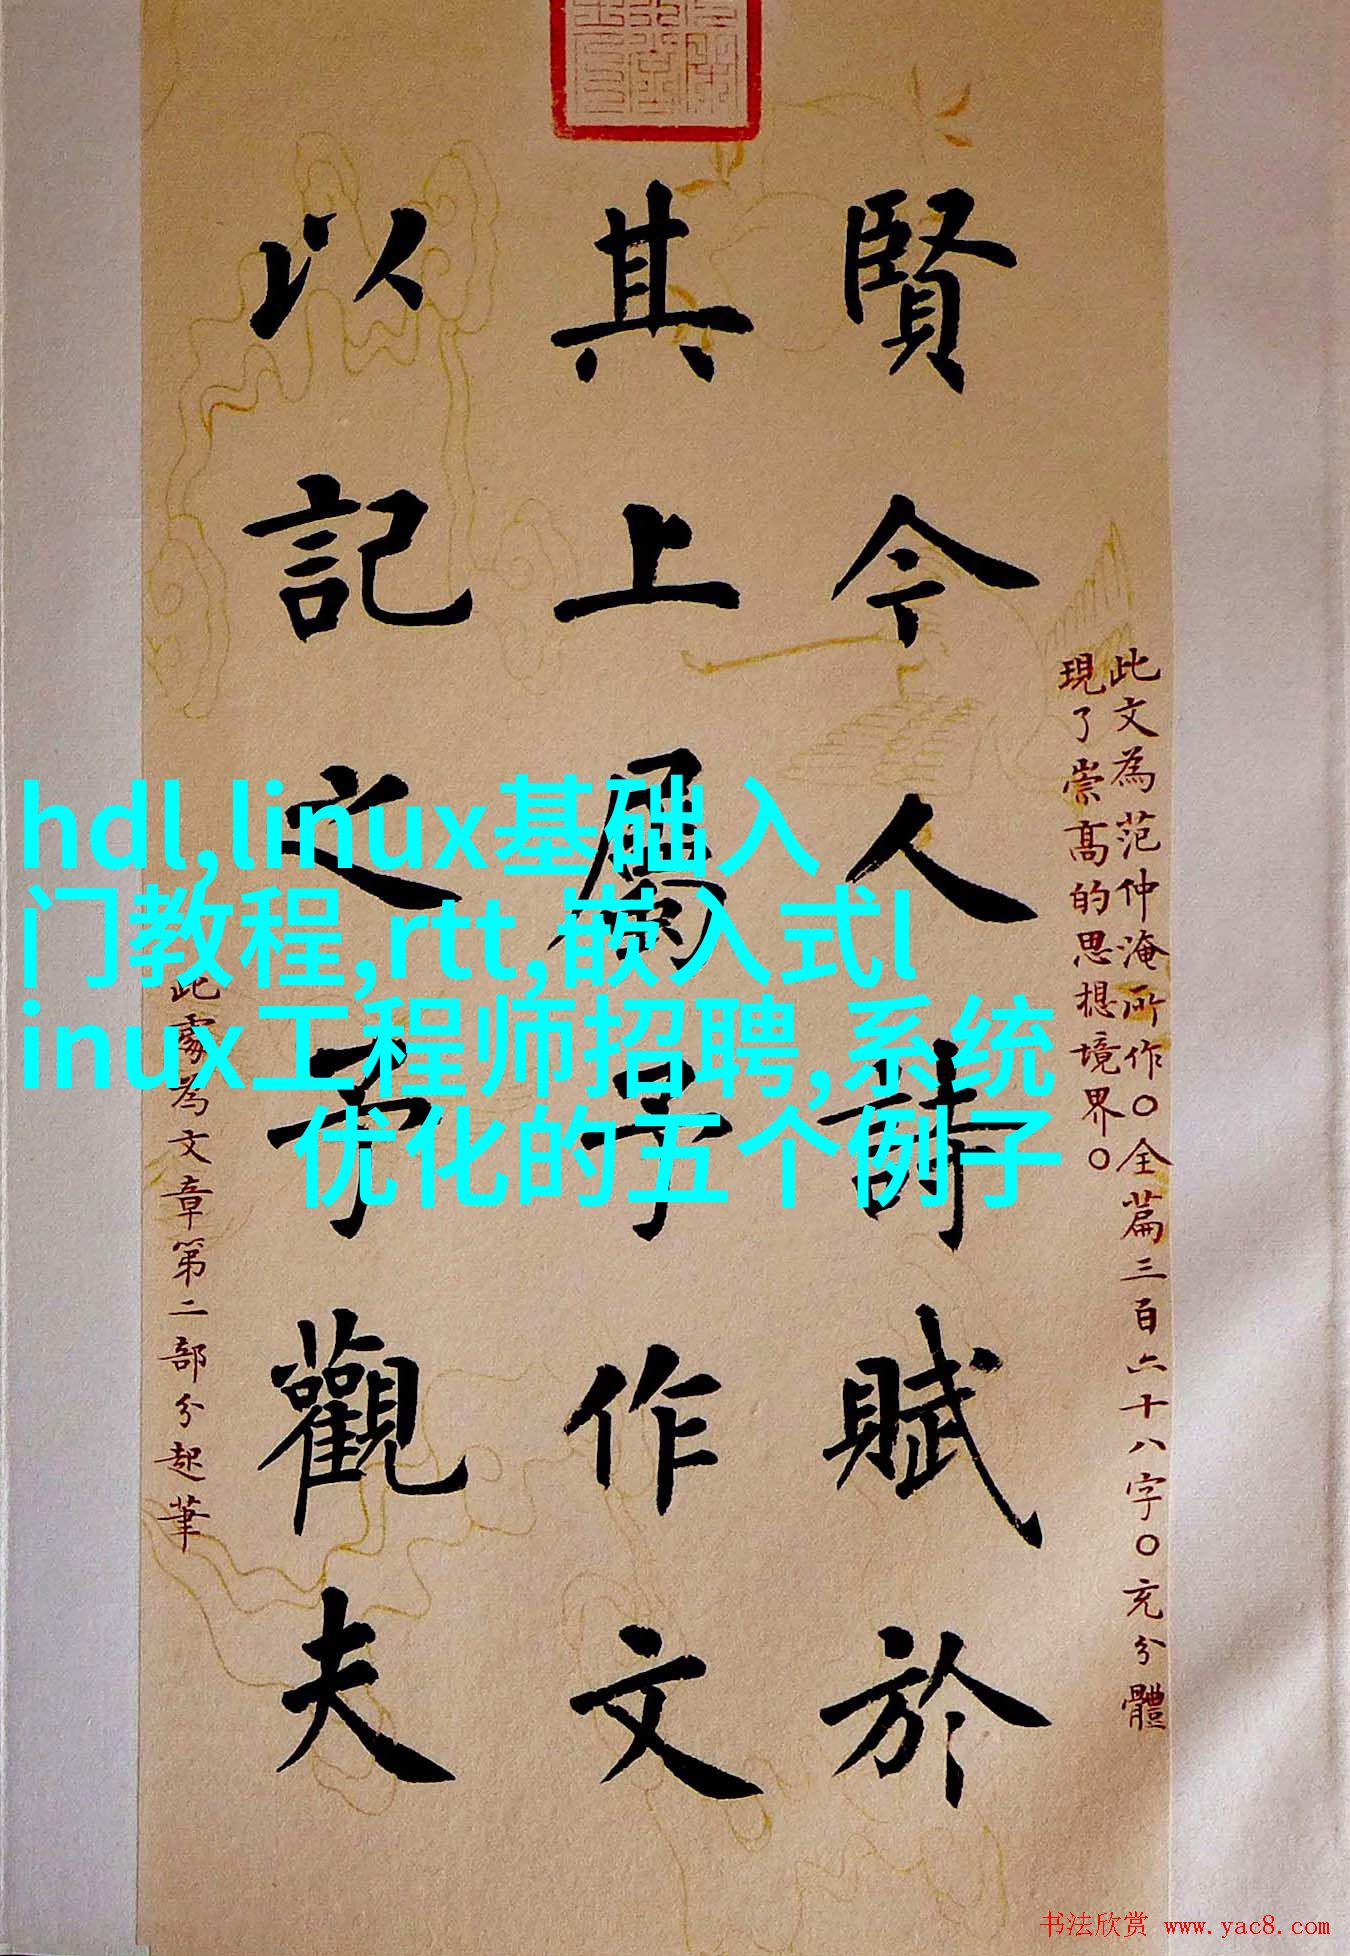 此文為范仲淹所作〇全篇三百六十八字〇充分體
現了崇高的思想境界〇
賢今人詩賦於
其上屬予作文
以記之予觀夫
此處為文章第二部分起筆
hdl,linux基础入
门教程,rtt,嵌入式l
inux工程师招聘,系统
优化的五个例子
书法欣赏 www.yac8.com